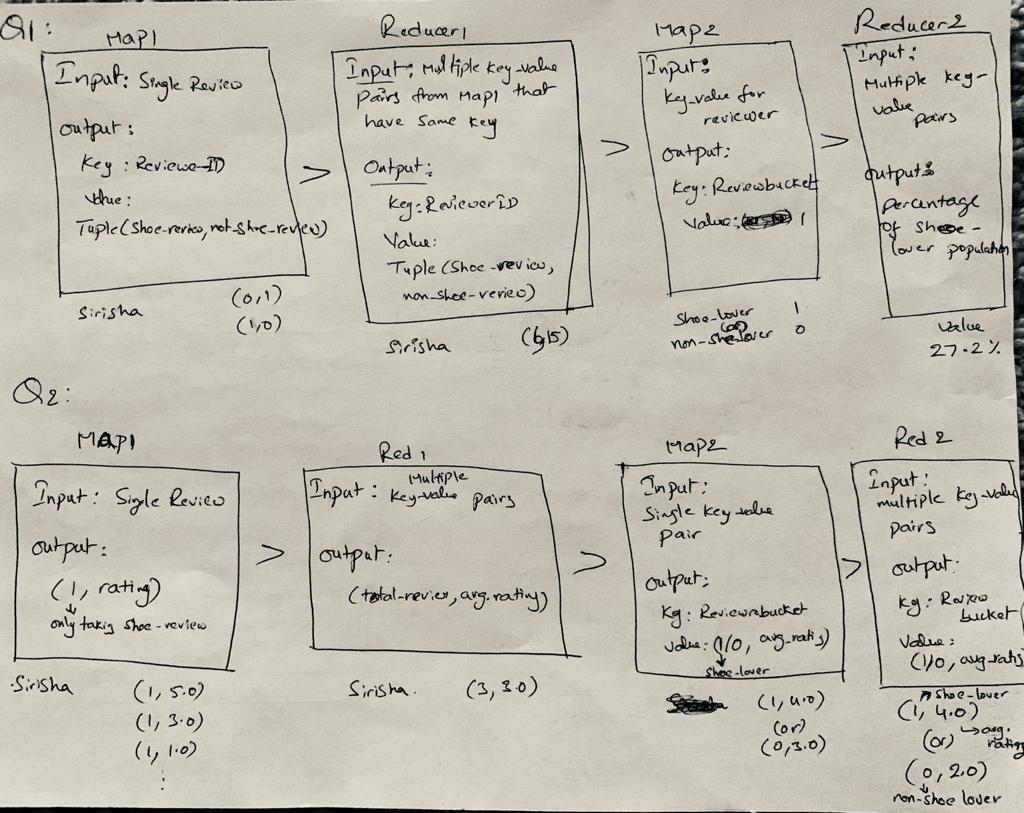 Q1:
Map1
Input: Single Review
output:
Key: Reviewer-ID
Value:
Tuple(Shoe-review, not-shoe-review)
Sirisha (0,1)
(1,0)
>
Reducer1
Input: Multiple key-value
pairs from Map1 that
have same key
Output:
Key: ReviewerID
Value:
Tuple(Shoe-review,
non-shoe-review)
Sirisha (6,15)
>
Map2
Input:
Key-value for
reviewer
output:
Key: Reviewbucket
Value: 1
Shoe-lover 1
(or)
non-shoelover 0
>
Reducer2
Input:
Multiple key-
value
pairs
output:
percentage
of shoe-
lover population
Value
27.2%
Q2:
MAP1
Input: Single Review
output:
(1, rating)
only taking shoe-review
Sirisha (1, 5.0)
(1, 3.0)
(1, 1.0)
⋮
>
Red 1
Input: Multiple
key-value pairs
output:
(total-review, avg.rating)
Sirisha. (3, 3.0)
>
Map2
Input:
Single key-value
pair
Output:
Reviewrebucket
value: (1/0, avg_ratis)
shoe-lover
(1, 4.0)
(or)
(0, 3.0)
>
Red 2
Input:
multiple key-value
pairs
output:
Review
bucket
Value:
(1/0, avg-ratis)
shoe-lover
(1, 4.0)
(or) avg.
rating
(0, 2.0)
non-shoe lover